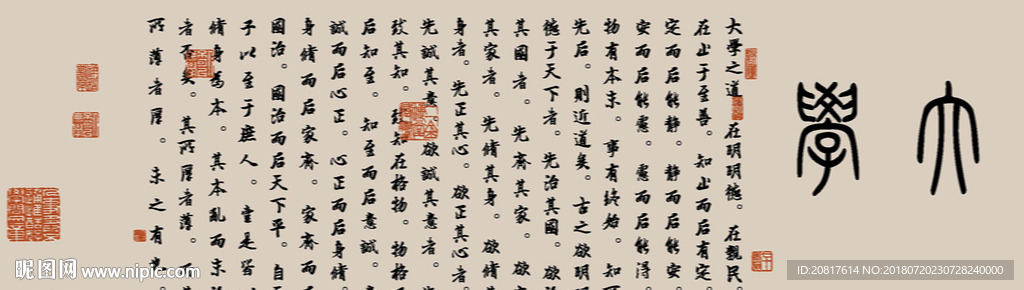 大學
大學之道。在明明德。在親民。
在止于至善。知止而后有定。
定而后能靜。靜而后能安。
安而后能慮。慮而后能得。
物有本末。事有終始。知所
先后。則近道矣。古之欲明
德于天下者。先治其國。欲治
其國者。先齊其家。欲
其家者。先脩其身。欲脩
身者。先正其心。欲正其心者。
先誠其意。欲誠其意者。
致其知。致知在格物。物格
后知至。知至而后意誠。
誠而后心正。心正而后身脩。
身脩而后家齊。家齊而后
國治。國治而后天下平。自
子以至于庶人。壹是皆
脩身為本。其本亂而末治
者否矣。其所厚者薄。而其
所薄者厚。未之有也。
昵图网 www.nipic.com
ID:20817614 NO:20180720230728240000